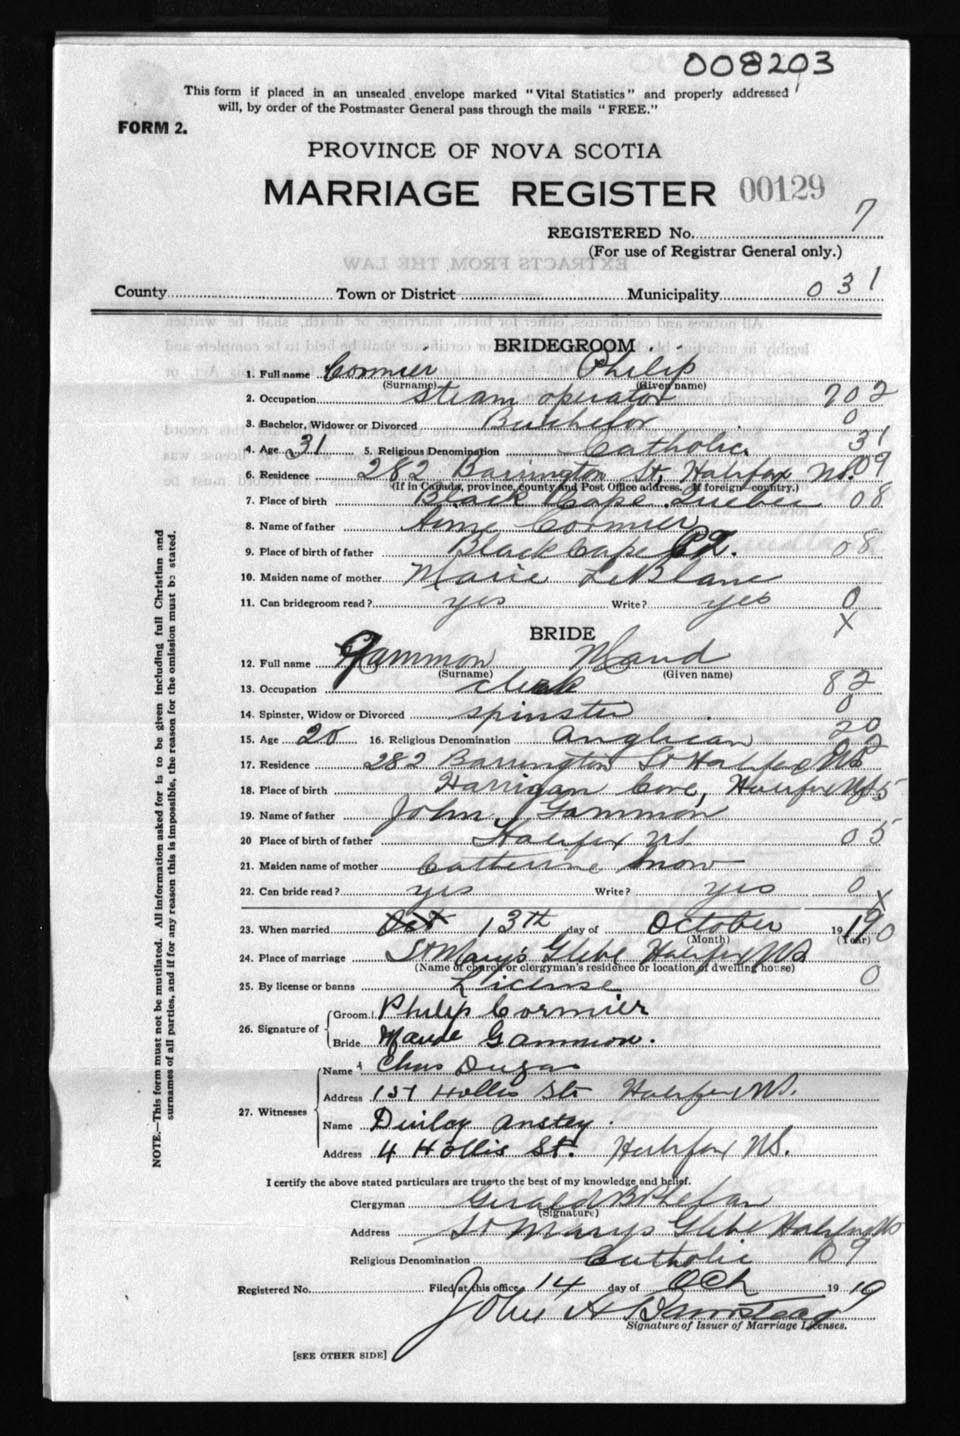 008203
This form if placed in an unsealed envelope marked "Vital Statistics" and properly addressed
will, by order of the Postmaster General pass through the mails "FREE."
FORM 2.
PROVINCE OF NOVA SCOTIA
MARRIAGE REGISTER 00129
REGISTERED No. 7
(For use of Registrar General only.)
County Town or District Municipality 031
BRIDEGROOM
1. Full name Cormier Philip
(Surname) (Given name)
2. Occupation steam operator 702
3. Bachelor, Widower or Divorced Batchelor 0
4. Age 31 5. Religious Denomination Catholic. 31
6. Residence 282 Barrington St, Halifax NS. 09
(If in Canada, province, county and Post Office address. If foreign country.)
7. Place of birth Black Cape Quebec 08
8. Name of father Aime Cormier
9. Place of birth of father Black Cape P.Q. 08
10. Maiden name of mother Marie LeBlanc
11. Can bridegroom read? yes Write? yes 0
X
BRIDE
12. Full name Gammon Maud
(Surname) (Given name)
13. Occupation clerk 82
14. Spinster, Widow or Divorced spinster 0
15. Age 20 16. Religious Denomination Anglican 20
17. Residence 282 Barrington St Halifax NS
18. Place of birth Harrigan Cove, Halifax NS 5
19. Name of father John Gammon
20 Place of birth of father Halifax NS. 05
21. Maiden name of mother Catherine Snow
22. Can bride read? yes Write? yes 0
X
23. When married Oct 13th day of October 19
(Month) (Year)
24. Place of marriage St Mary's Glebe Halifax NS
(Name of church or clergyman's residence or location of dwelling house)
25. By license or banns License 0
26. Signature of Groom Philip Cormier
Bride Maude Gammon.
27. Witnesses Name Chas Dugas
Address 137 Hollis St. Halifax NS.
Name Anstey
Address 4 Hollis St. Halifax NS.
I certify the above stated particulars are true to the best of my knowledge and belief.
Clergyman Gerald B Phelan
(Signature)
Address St Marys Glebe Halifax NS
Religious Denomination Catholic 09
Registered No. Filed at this office 14 day of Oct 19 19
John A
Signature of Issuer of Marriage Licenses.
[SEE OTHER SIDE]
NOTE.—This form must not be mutilated. All information asked for is to be given including full Christian and
surnames of all parties, and if for any reason this is impossible, the reason for the omission must be stated.